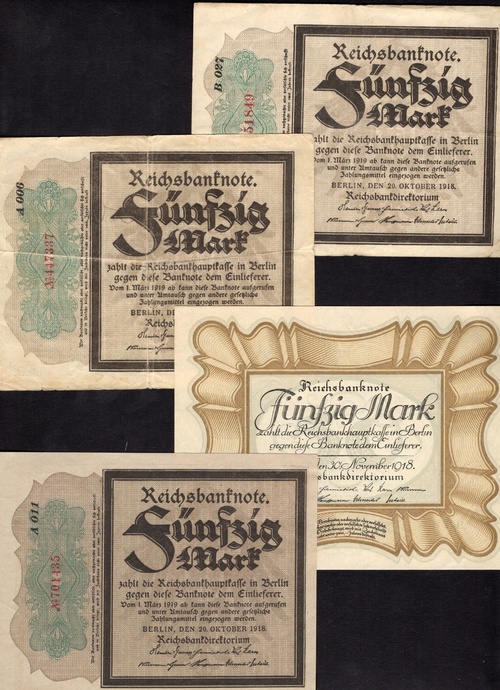 B 027
51849
Reichsbanknote.
Fünfzig
Mark
zahlt die Reichsbankhauptkasse in Berlin
gegen diese Banknote dem Einlieferer.
Vom 1. März 1919 ab kann diese Banknote aufgerufen
und unter Umtausch gegen andere gesetzliche
Zahlungsmittel eingezogen werden.
BERLIN, DEN 20. OKTOBER 1918.
Reichsbankdirektorium
A 006
№447337
Reichsbanknote.
Fünfzig
Mark
zahlt die Reichsbankhauptkasse in Berlin
gegen diese Banknote dem Einlieferer.
Vom 1. März 1919 ab kann diese Banknote aufgerufen
und unter Umtausch gegen andere gesetzliche
Zahlungsmittel eingezogen werden.
BERLIN, DE
Reichsb
Reichsbanknote
Fünfzig Mark
zahlt die Reichsbankhauptkasse in Berlin
gegen diese Banknote dem Einlieferer.
den 30. November 1918.
sbankdirektorium
A 011
№701135
Reichsbanknote.
Fünfzig
Mark
zahlt die Reichsbankhauptkasse in Berlin
gegen diese Banknote dem Einlieferer.
Vom 1. März 1919 ab kann diese Banknote aufgerufen
und unter Umtausch gegen andere gesetzliche
Zahlungsmittel eingezogen werden.
BERLIN, DEN 20. OKTOBER 1918.
Reichsbankdirektorium